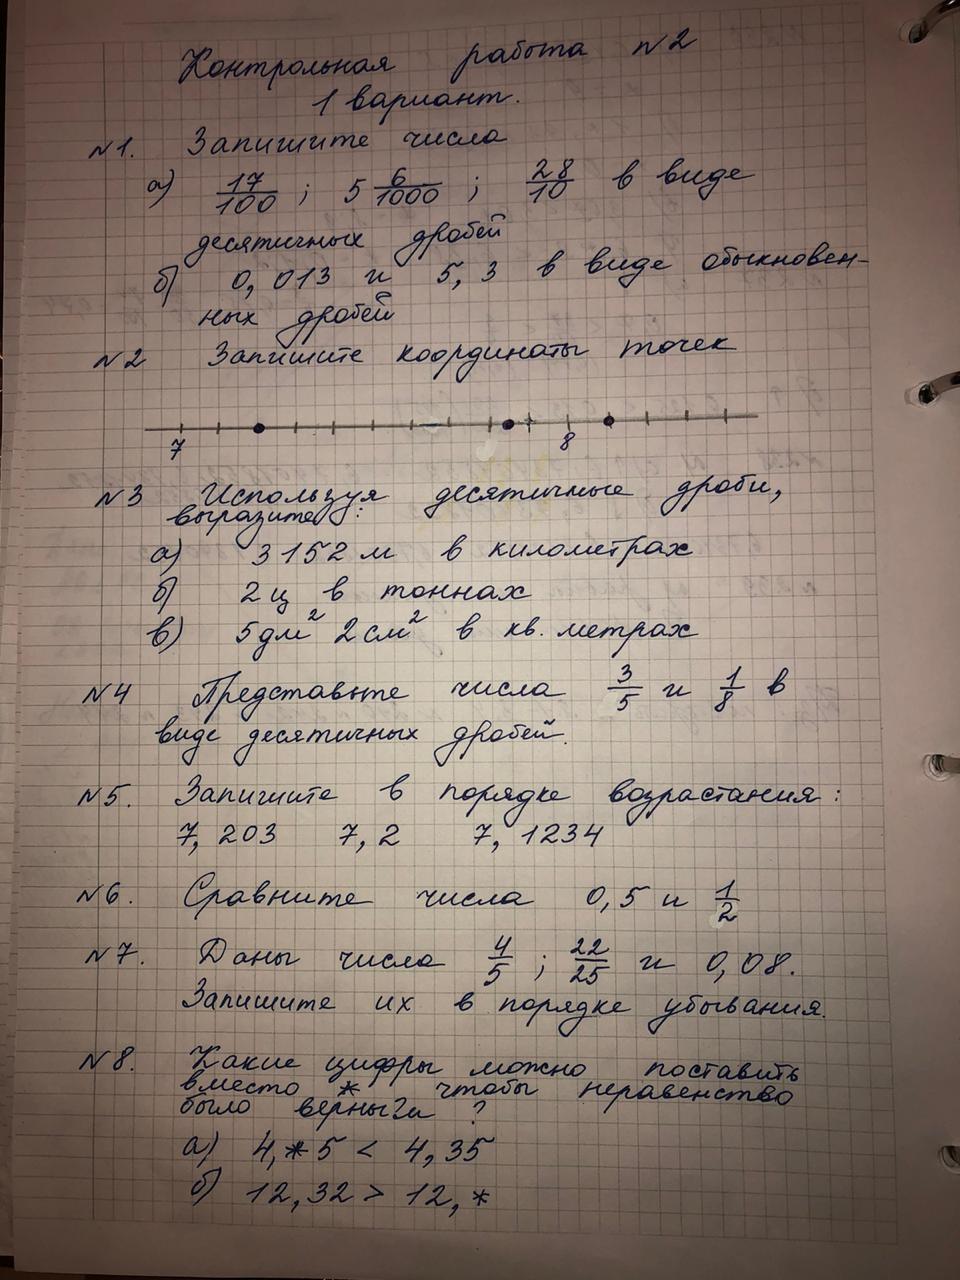 Контрольная работа №2
1 вариант.
№1. Запишите числа
а) 17/100 ; 5 6/1000 ; 28/10 в виде
десятичных дробей
б) 0,013 и 5,3 в виде обыкновен-
ных дробей
№2 Запишите координаты точек
7 8
№3 Используя десятичные дроби,
выразите:
а) 3152 м в километрах
б) 2 ц в тоннах
в) 5 дм² 2 см² в кв. метрах
№4 Представьте числа 3/5 и 1/8 в
виде десятичных дробей.
№5. Запишите в порядке возрастания:
7,203 7,2 7,1234
№6. Сравните числа 0,5 и 1/2
№7. Даны числа 4/5 ; 22/25 и 0,08.
Запишите их в порядке убывания.
№8. Какие цифры можно поставить
вместо * чтобы неравенство
было верным ?
а) 4,*5 < 4,35
б) 12,32 > 12,*